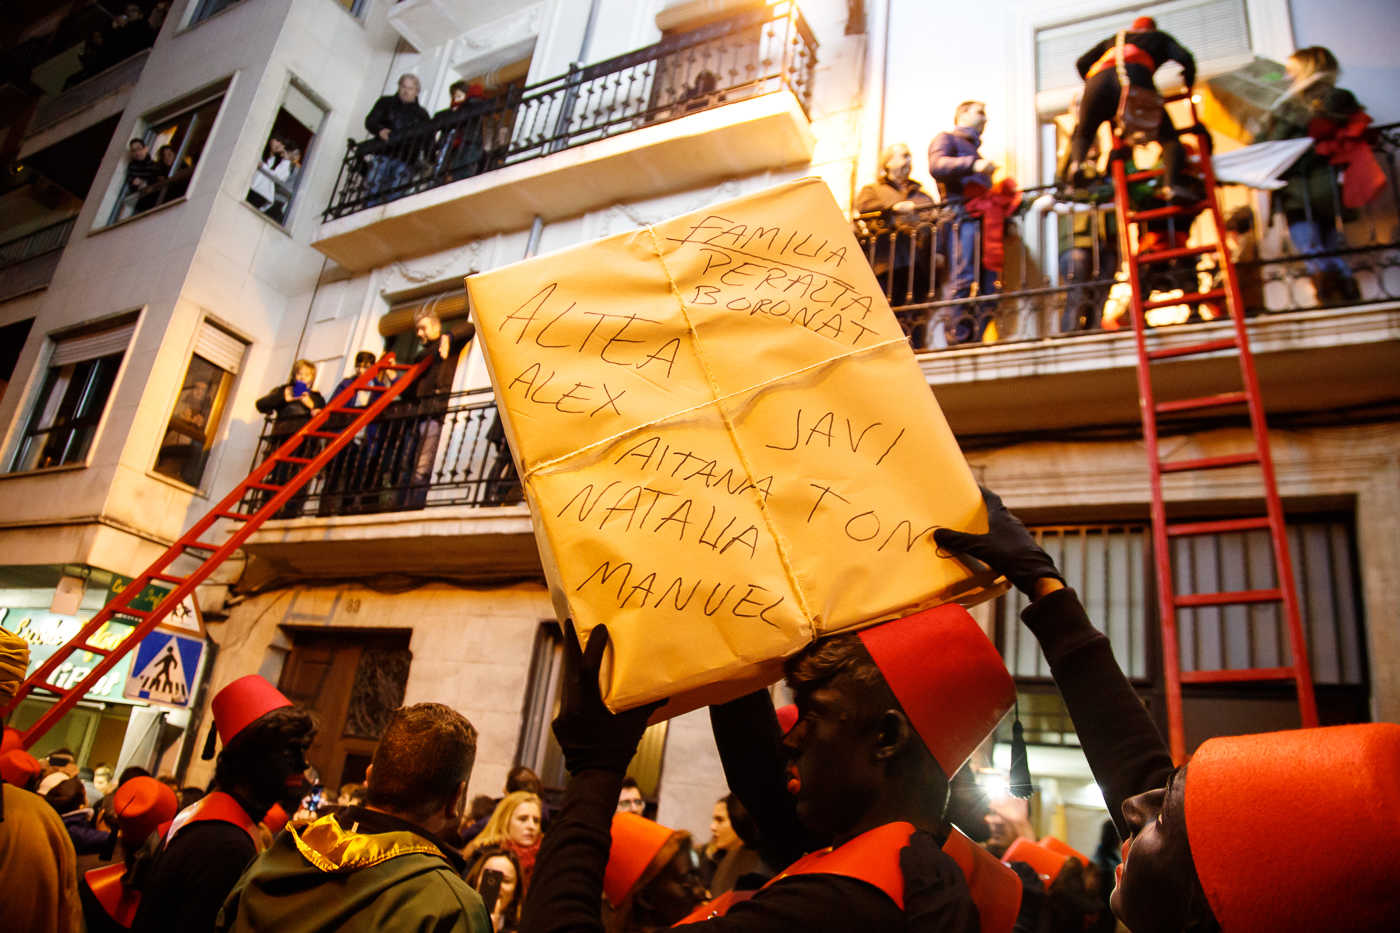 FAMILIA
PERALTA
BORONAT
ALTEA
ALEX
JAVI
AITANA
TONO
NATALIA
MANUEL
63